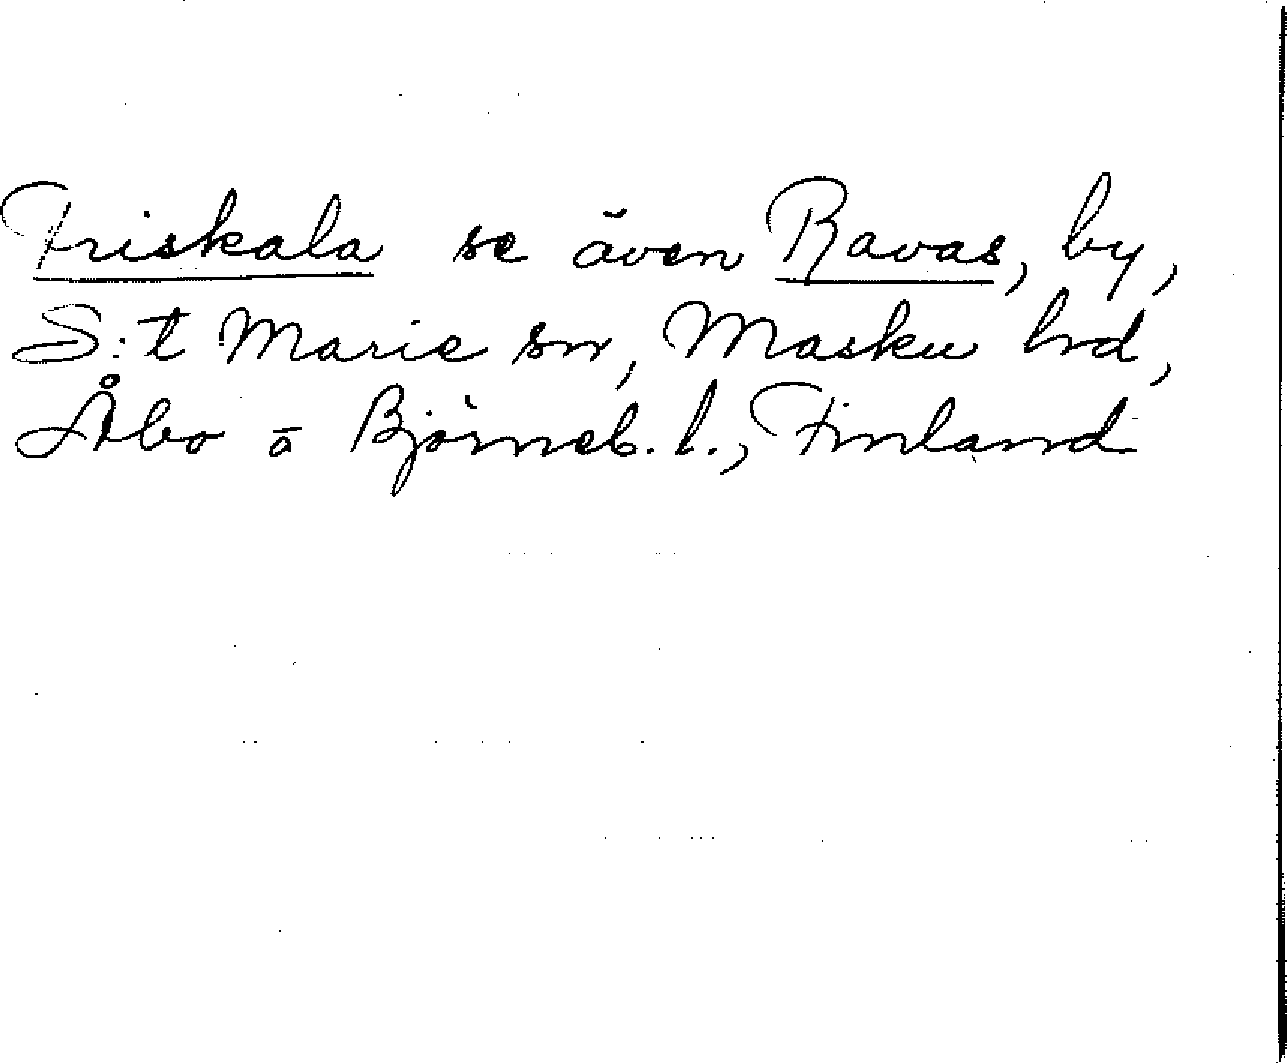 Friskala se även Ravas, by,
S:t Marie sn, Masku hrd,
Åbo o Björneb. l., Finland